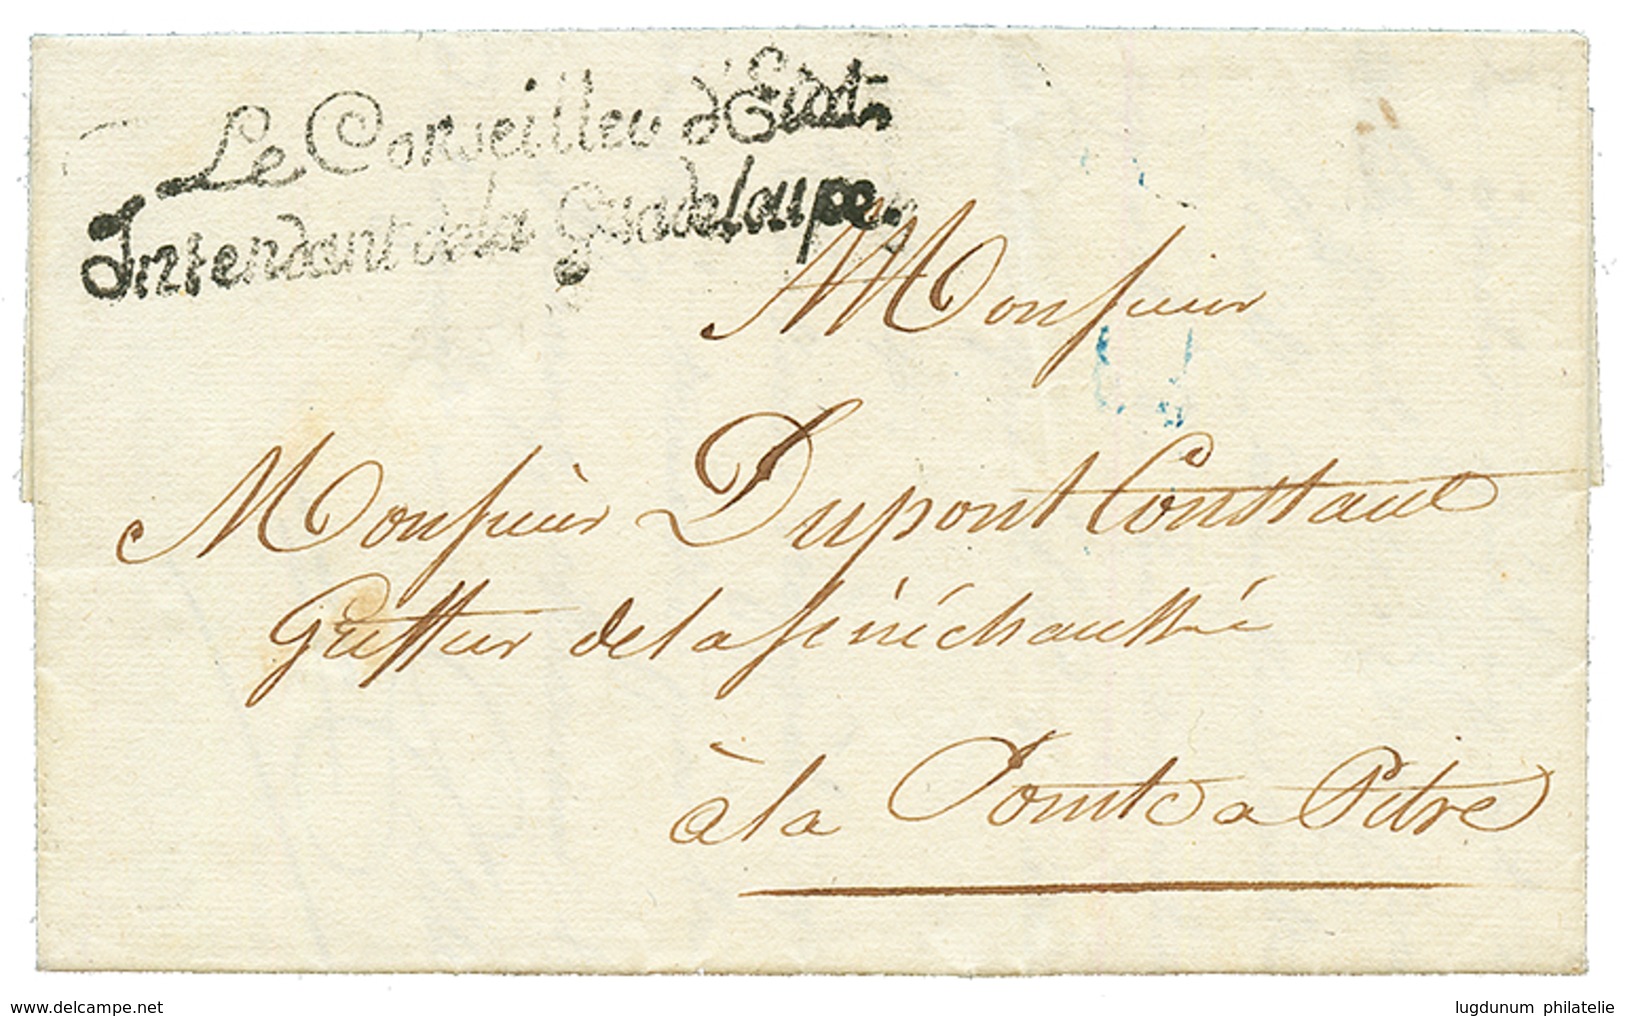 Le Conseiller d'Etat,
Intendant de la Guadeloupe,
Monsieur
Monsieur Dupont Constant
Greffier de la sénéchaussée
à la Pointe a Pitre
www.delcampe.net
lugdunum philatelie